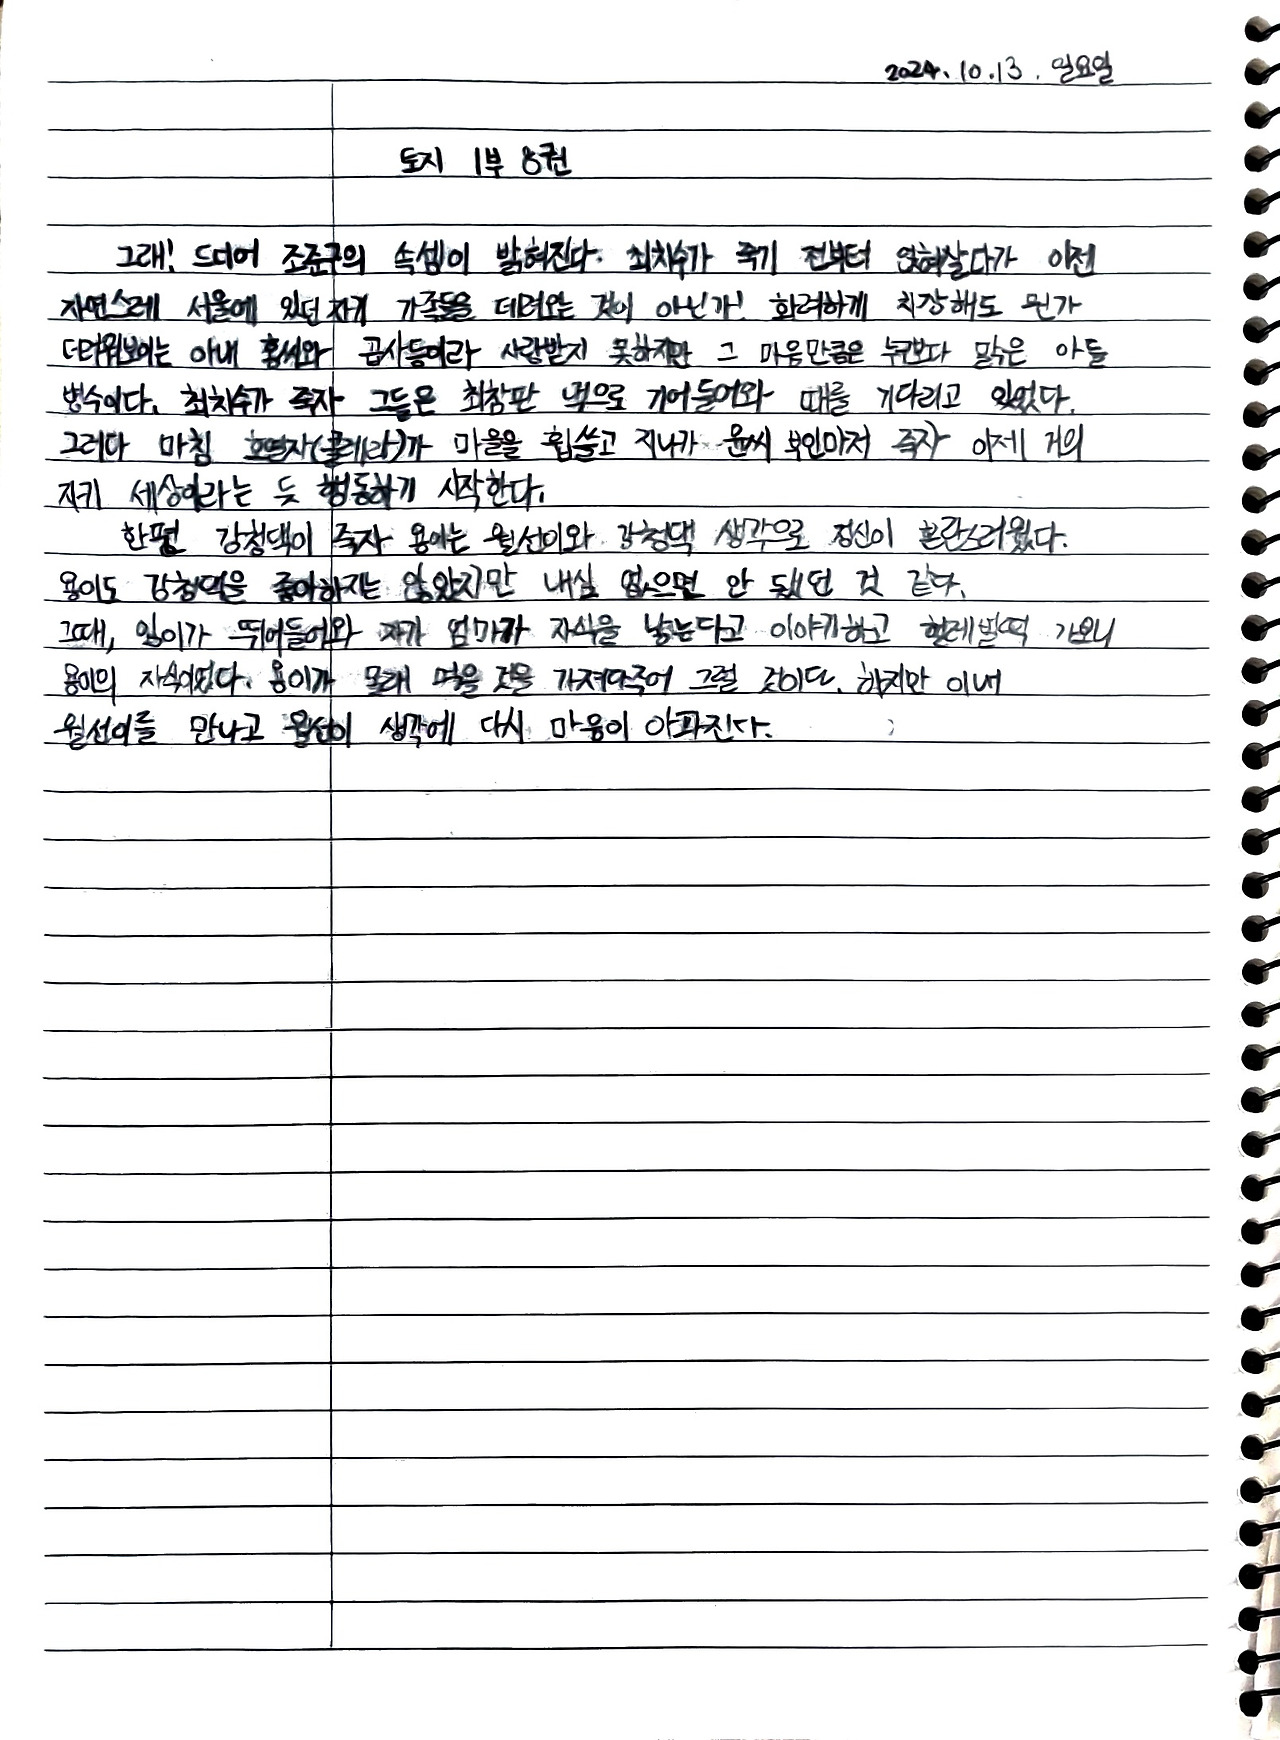 2024. 10. 13. 일요일
토지 1부 8권
그래! 드디어 조준구의 속셈이 밝혀진다. 최치수가 죽기 전부터 얹혀살다가 이젠
자연스레 서울에 있던 자기 가족들을 데려오는 것이 아닌가! 화려하게 치장해도 뭔가
더러워보이는 아내 홍씨와 곱사등이라 사랑받지 못하지만 그 마음만큼은 누구보다 맑은 아들
병수이다. 최치수가 죽자 그들은 최참판 댁으로 기어들어와 때를 기다리고 있었다.
그러다 마침 호열자(콜레라)가 마을을 휩쓸고 지나가 윤씨 부인마저 죽자 이제 거의
자기 세상이라는 듯 행동하기 시작한다.
한편 강청댁이 죽자 용이는 월선이와 강청댁 생각으로 정신이 혼란스러웠다.
용이도 강청댁을 좋아하지는 않았지만 내심 없으면 안 됐던 것 같다.
그때, 임이가 뛰어들어와 자기 엄마가 자식을 낳는다고 이야기하고 헐레벌떡 가보니
용이의 자식이었다. 용이가 몰래 먹을 것을 가져다주어 그럴 것이다. 하지만 이내
월선이를 만나고 월선이 생각에 다시 마음이 아파진다.